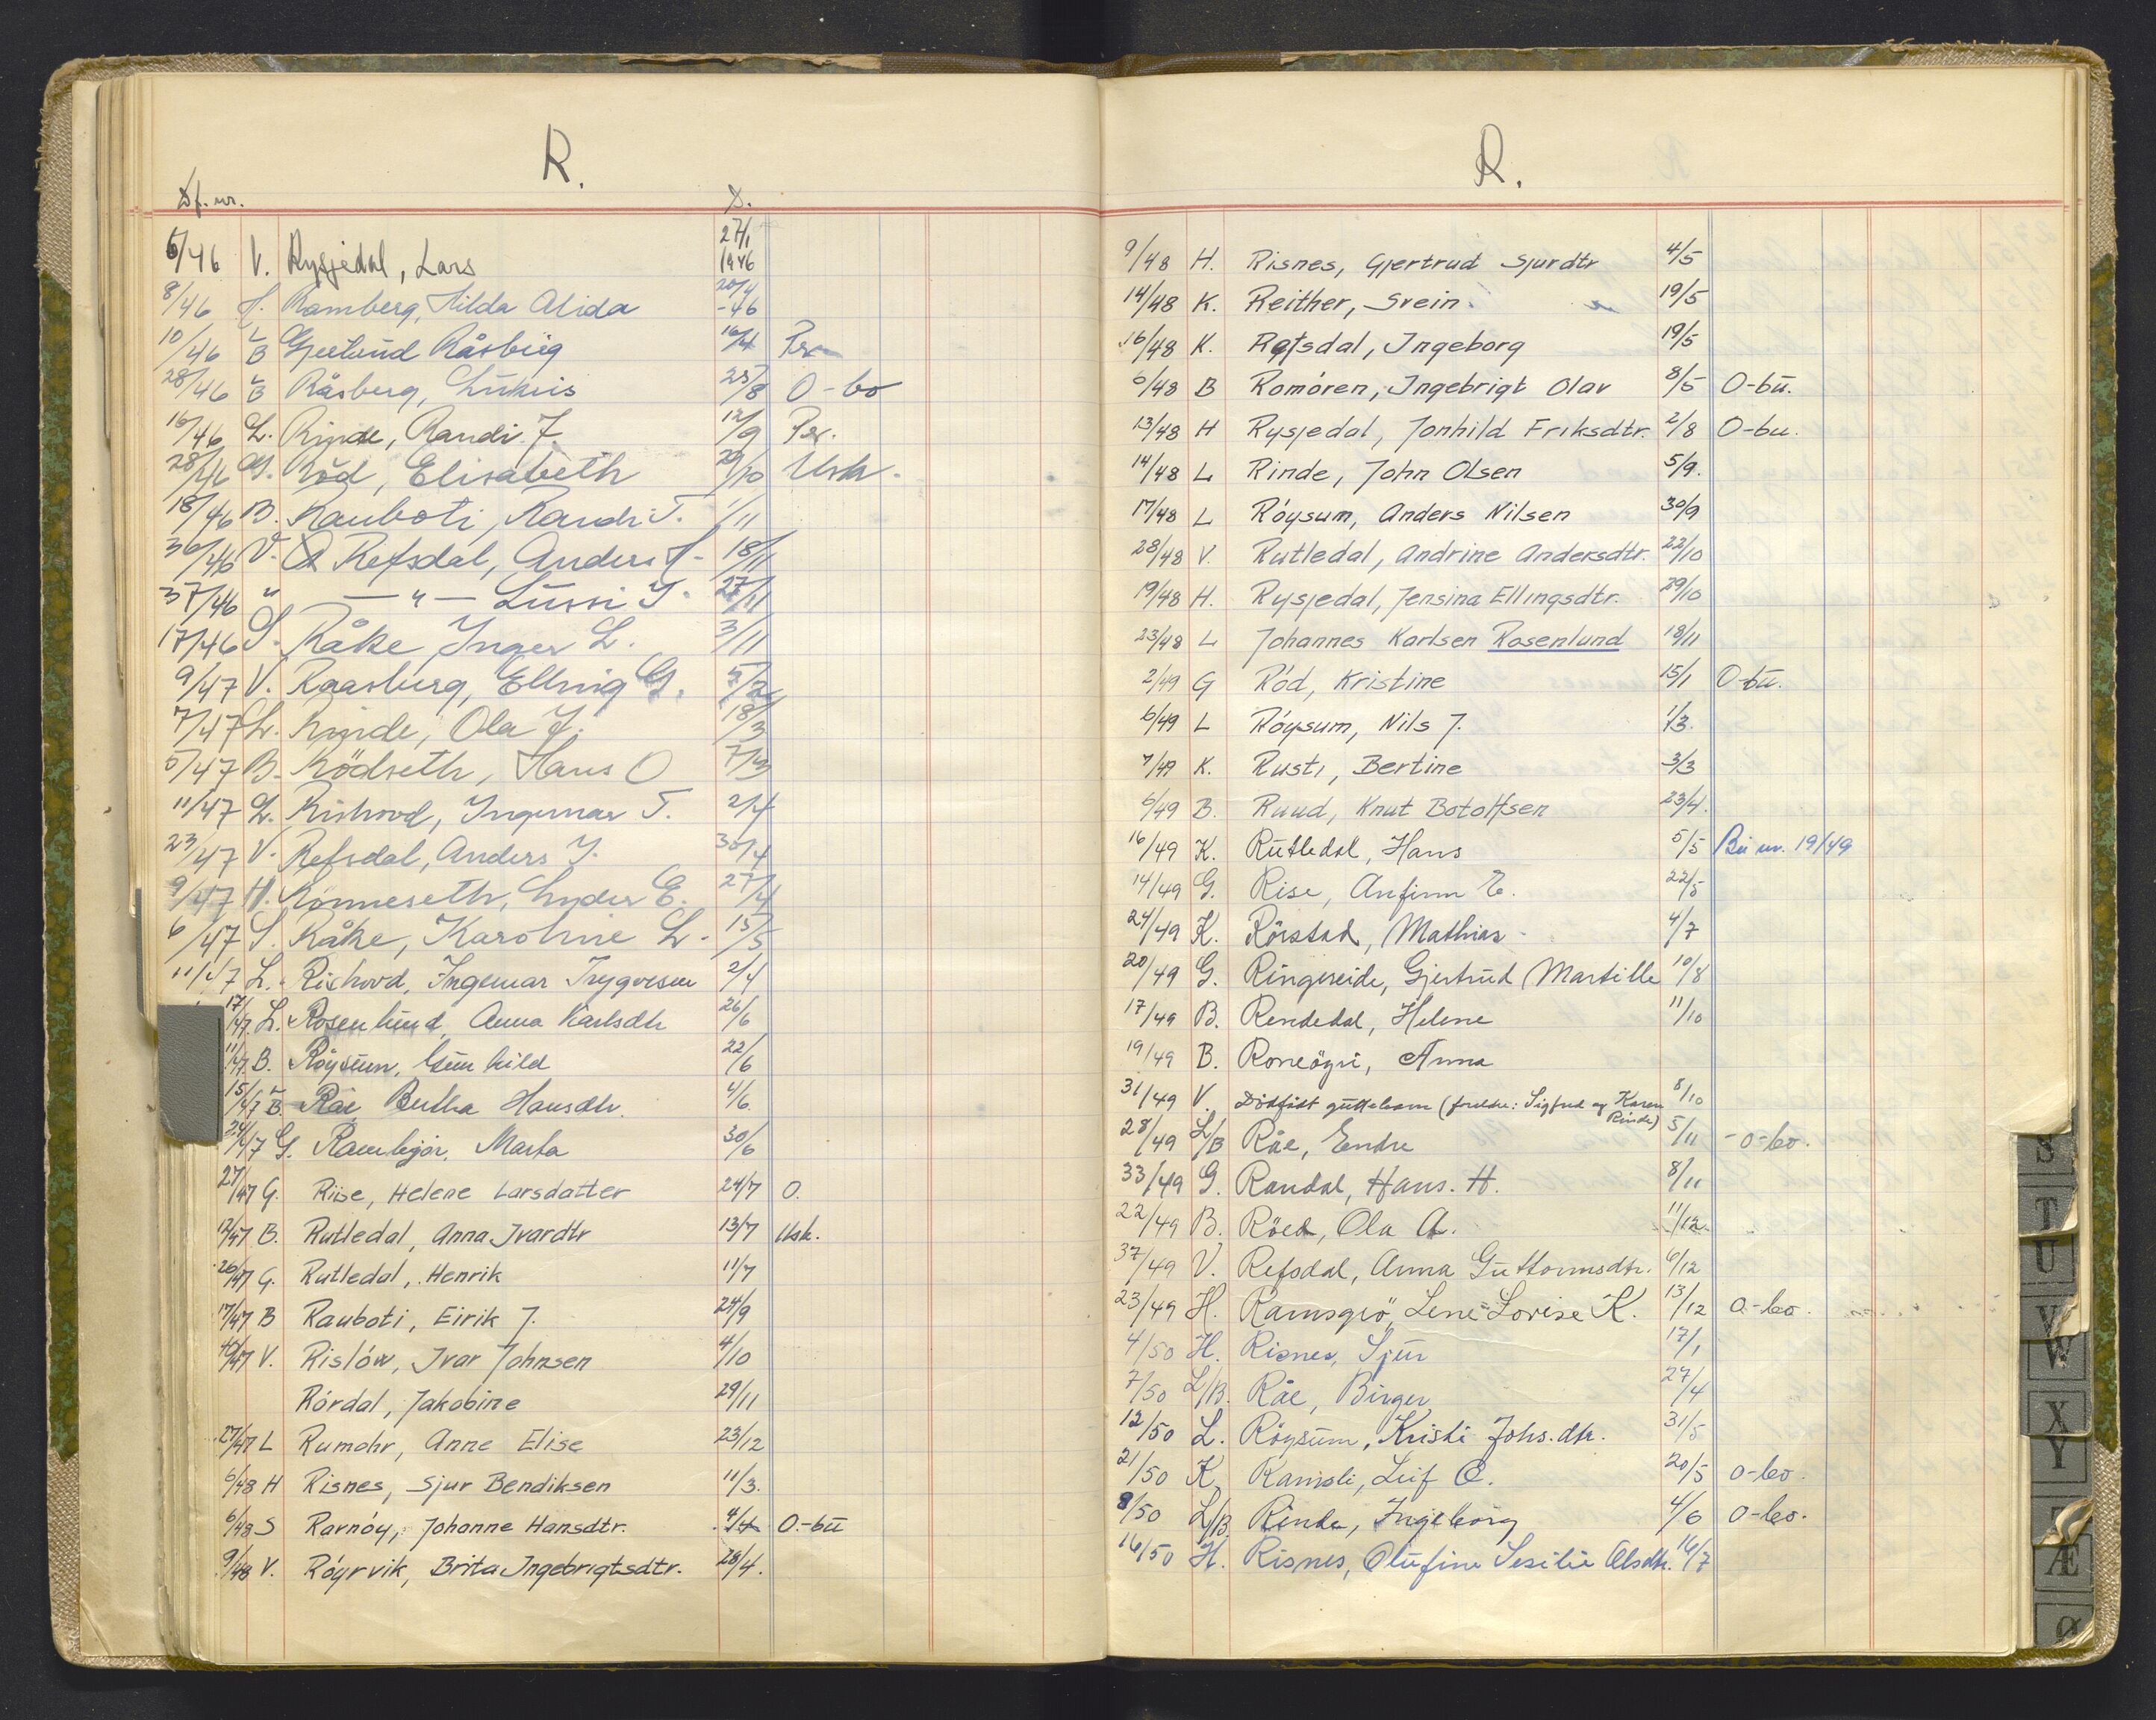 R.
Df. nr. D.
6/46 V. Rysjedal, Lars 27/1 1946
8/46 H. Ramberg, Hilda Alida 20/4 -46
10/46 L B Gjertrud Råsberg 16/4 Pr.
28/46 L B Råsberg, 25/8 O-bo
16/46 L. Rinde, Randi J. 12/9 Pr.
28/46 G. Röd, Elisabeth 29/10 Usk.
18/46 B. Rauboti, Randi T. 1/11
36/46 V. Refsdal, Anders J. 18/11
37/46 " —"— Lussi J. 27/11
17/46 S. Råke, Inger L. 3/11
9/47 V. Raasberg, Elling G. 5/2
7/47 L. Rinde, Ola J. 18/3
5/47 B. Rödseth, Hans O 7/3
11/47 L. Rishovd, Ingemar T. 2/4
23/47 V. Refsdal, Anders J. 30/4
9/47 H. Rönneseth, E. 27/4
6/47 S. Råke, Karoline L. 15/5
11/47 L. Rishovd, Ingemar Trygvesen 2/4
17/47 L. Rosenlund, Anna Karlsdtr 26/6
11/47 B. Röysum, Gunhild 22/6
15/47 L B. Råe, Bertha Hansdtr. 4/6
24/47 G. Marta 30/6
27/47 G. Riise, Helene Larsdatter 24/7 O.
12/47 B. Rutledal, Anna Ivardtr 13/7 Usk.
26/47 G. Rutledal, Henrik 11/7
17/47 B Rauboti, Eirik J. 24/9
40/47 V. Rislów, Ivar Johnsen 4/10
Rórdal, Jakobine 29/11
27/47 L Rumohr, Anne Elise 23/12
6/48 H Risnes, Sjur Bendiksen 11/3.
6/48 S Rarnóy, Johanne Hansdtr. 4/4 O.-bū
9/48 V. Róyrvik, Brita Ingebrigtsdtr. 28/4.
R.
9/48 H. Risnes, Gjertrud Sjurdtr 4/5
14/48 K. Reither, Svein. 19/5
16/48 K. Refsdal, Ingeborg 19/5
6/48 B Romóren, Ingebrigt Olav 8/5 O-bū.
13/48 H Rysjedal, Jonhild Eriksdtr. 2/8 O-bu.
14/48 L Rinde, John Olsen 5/9.
17/48 L Róysum, Anders Nilsen 30/9
28/48 V. Rutledal, Andrine Andersdtr. 22/10
19/48 H. Rysjedal, Jensina Ellingsdtr. 29/10
23/48 L Johannes Karlsen Rosenlund 18/11
2/49 G Ród, Kristine 15/1 O-bū.
6/49 L Róysum, Nils J. 1/3.
7/49 K. Rusti, Bertine 3/3
6/49 B. Ruud, Knut Botolfsen 23/4.
16/49 K. Rūtledal, Hans 5/5 Bū nr. 19/49
14/49 G. Rise, Anfinn E. 22/5
24/49 K. Rörstad, Mathias 4/7
20/49 G. Ringereide, Gjertrūd Martille 10/8
17/49 B. Rendedal, Helene 11/10
19/49 B. Anna
31/49 V. Dödfödt guttebarn (foreldre: Sigfred og Karen Rinde) 8/10
28/49 L/B Råe, Endre 5/11 -o-bo.
33/49 G. Randal, Hans. H. 8/11
22/49 B. Röed, Ola A. 11/12
37/49 V. Refsdal, Anna Guttormsdtr. 6/12
23/49 H. Ramsgrö, Lene-Lovise K. 13/12 o.-bo.
4/50 H. Risnes, Sjūr 17/1
7/50 L/B. Råe, Birger 27/4
12/50 L. Röysūm, Kristi Johs.dtr. 31/5
21/50 K. Ramsli, Leif O. 20/5 o-bo.
8/50 L/B. Rinde, Ingeborg 4/6 o-bo.
16/50 H. Risnes, Olūfine Sesilie Olsdtr. 16/7
S
T
U
V
W
X
Y
Æ
Ø